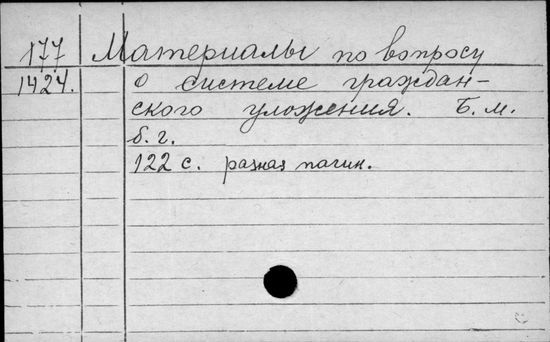 177 Материалы по вопросу
1424. о системе граждан-
ского уложения. Б. м.
б. г.
122 с. разная пагин.